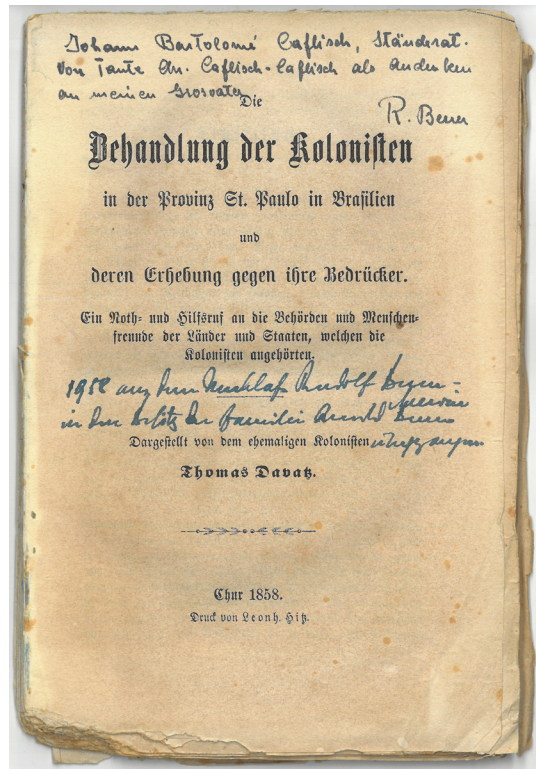 Johann Bartolomé Caflisch, Ständerat.
von Tante An. Caflisch-Caflisch als Andenken
an meinen Grosvater
R. Bener
Die
Behandlung der Kolonisten
in der Provinz St. Paulo in Brasilien
und
deren Erhebung gegen ihre Bedrücker.
Ein Noth- und Hilfsruf an die Behörden und Menschen-
freunde der Länder und Staaten, welchen die
Kolonisten angehörten.
1958 aus dem Nachlaß Rudolf
in den Besitz der Familie Arnold
übergegangen
Dargestellt von dem ehemaligen Kolonisten
Thomas Davatz.
Chur 1858.
Druck von Leonh. Hitz.